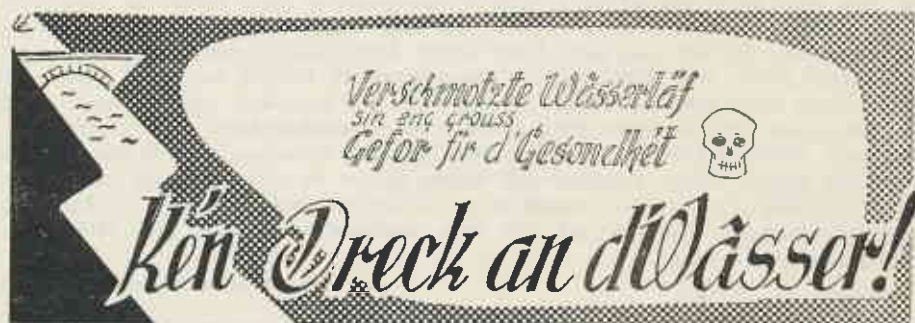 Verschmotzte Wâsserläf
sin eng grouss
Gefor fir d'Gesondhét
Kén Dreck an d'Wâsser!